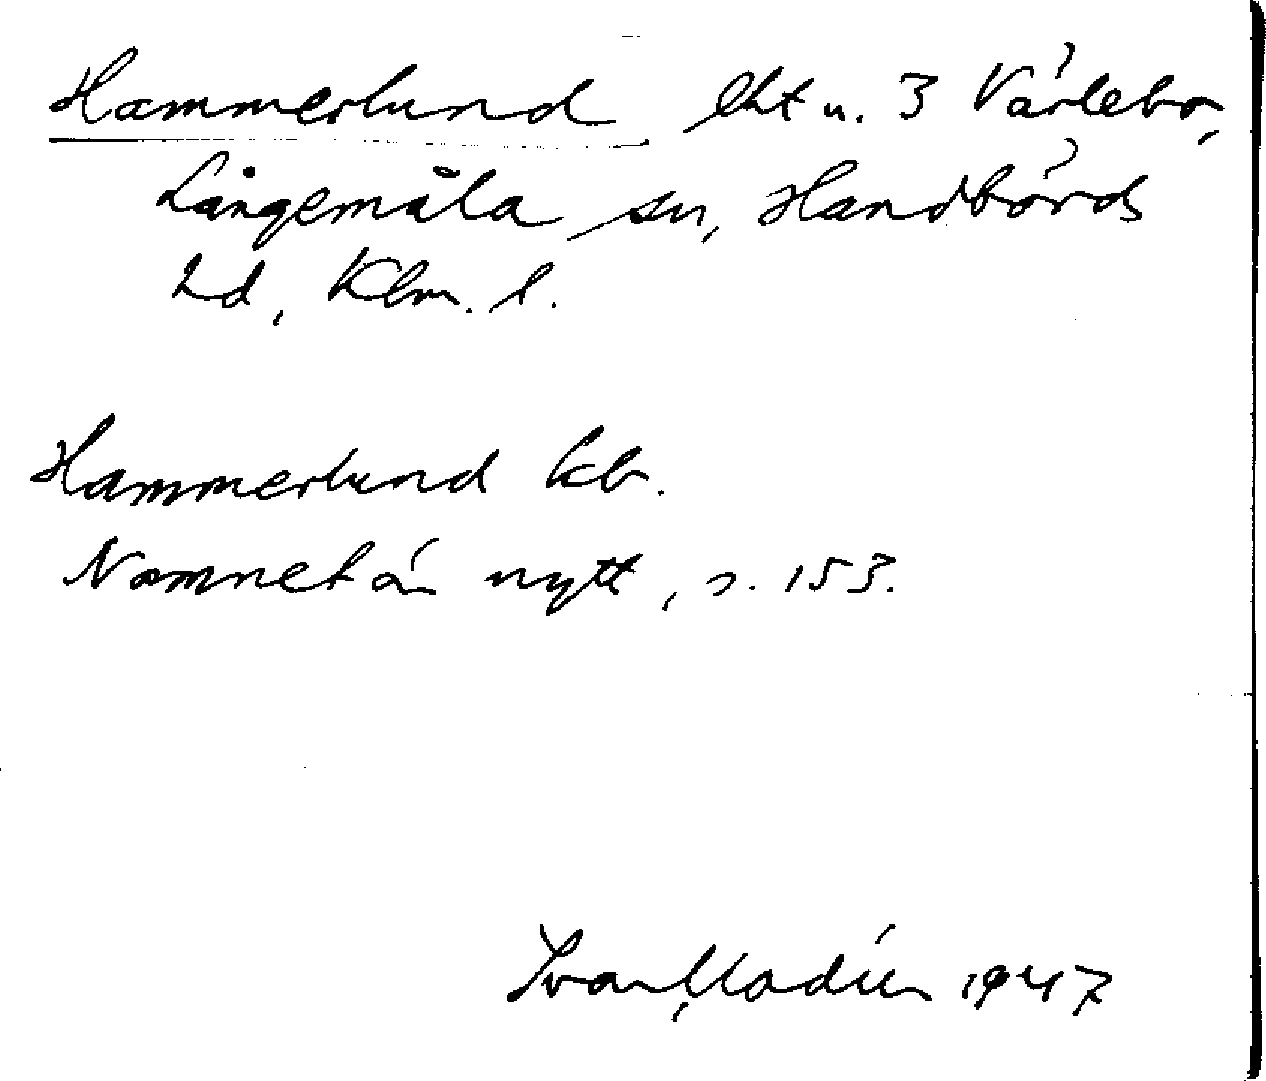 Hammerlund, lht u. 3 Värlebo,
Långemåla sn, Handbörds
hd, Klm. l.
Hammerlund kb.
Namnet är nytt, s. 153.
Ivar Modéer 1947